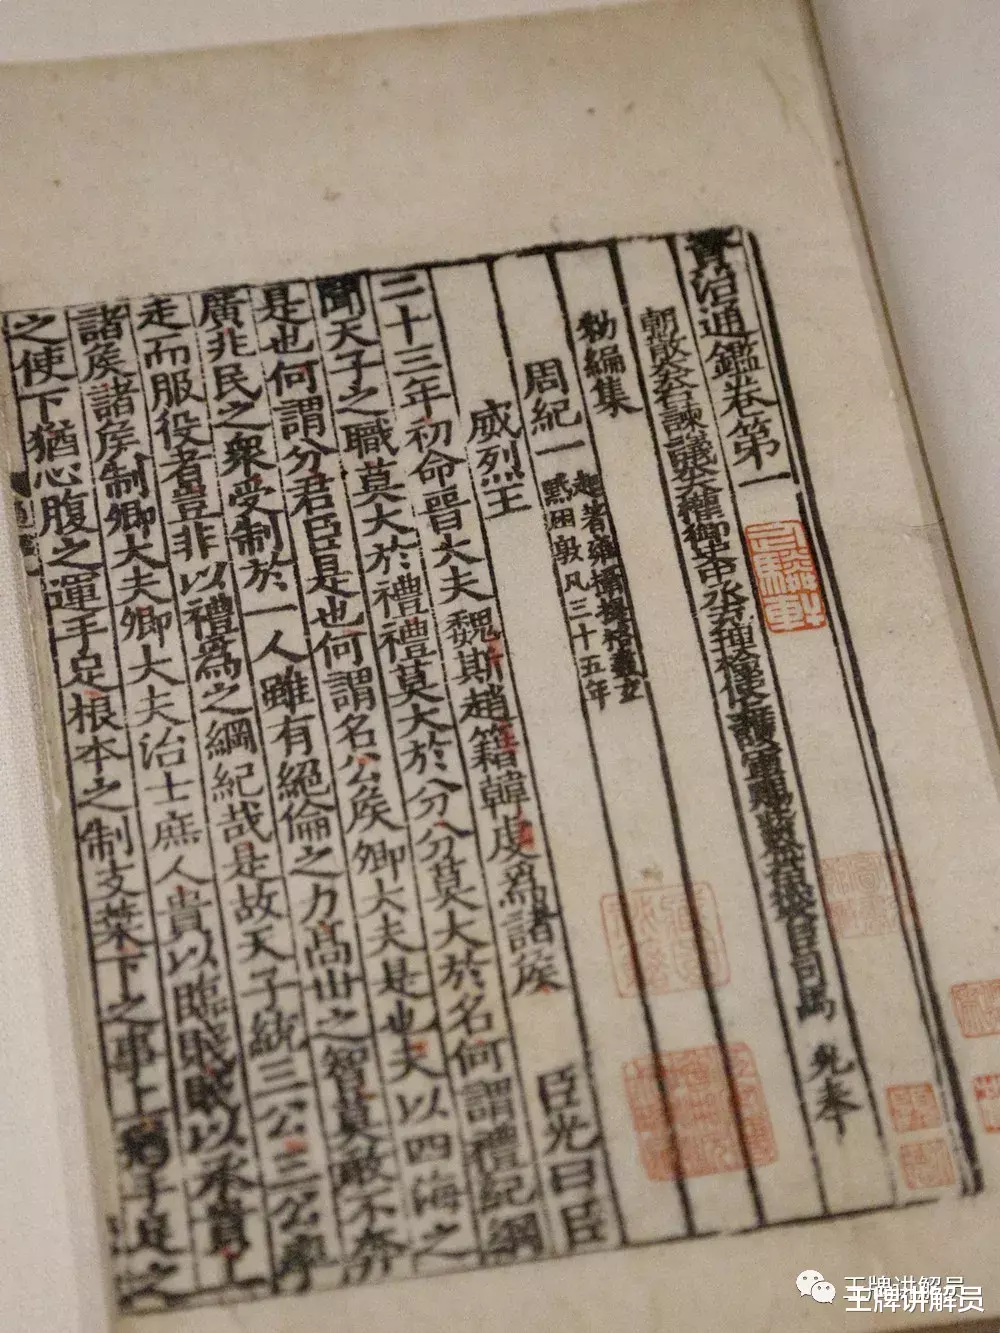 資治通鑑卷第一
朝散大夫右諫議大夫權御史中丞充理檢使上護軍賜紫金魚袋臣司馬 光奉
勑編集
周紀一 起著雍攝提格盡玄
黓困敦凡三十五年
威烈王
二十三年初命晉大夫魏斯趙籍韓虔爲諸侯 臣光曰臣
聞天子之職莫大於禮禮莫大於分分莫大於名何謂禮紀綱
是也何謂分君臣是也何謂名公侯卿大夫是也夫以四海之
廣兆民之衆受制於一人雖有絕倫之力髙世之智莫敢不奔
走而服役者豈非以禮爲之綱紀哉是故天子統三公三公率
諸侯諸侯制卿大夫卿大夫治士庶人貴以臨賤賤以承貴上
之使下猶心腹之運手足根本之制支葉下之事上猶手足之
王牌讲解员
王牌讲解员